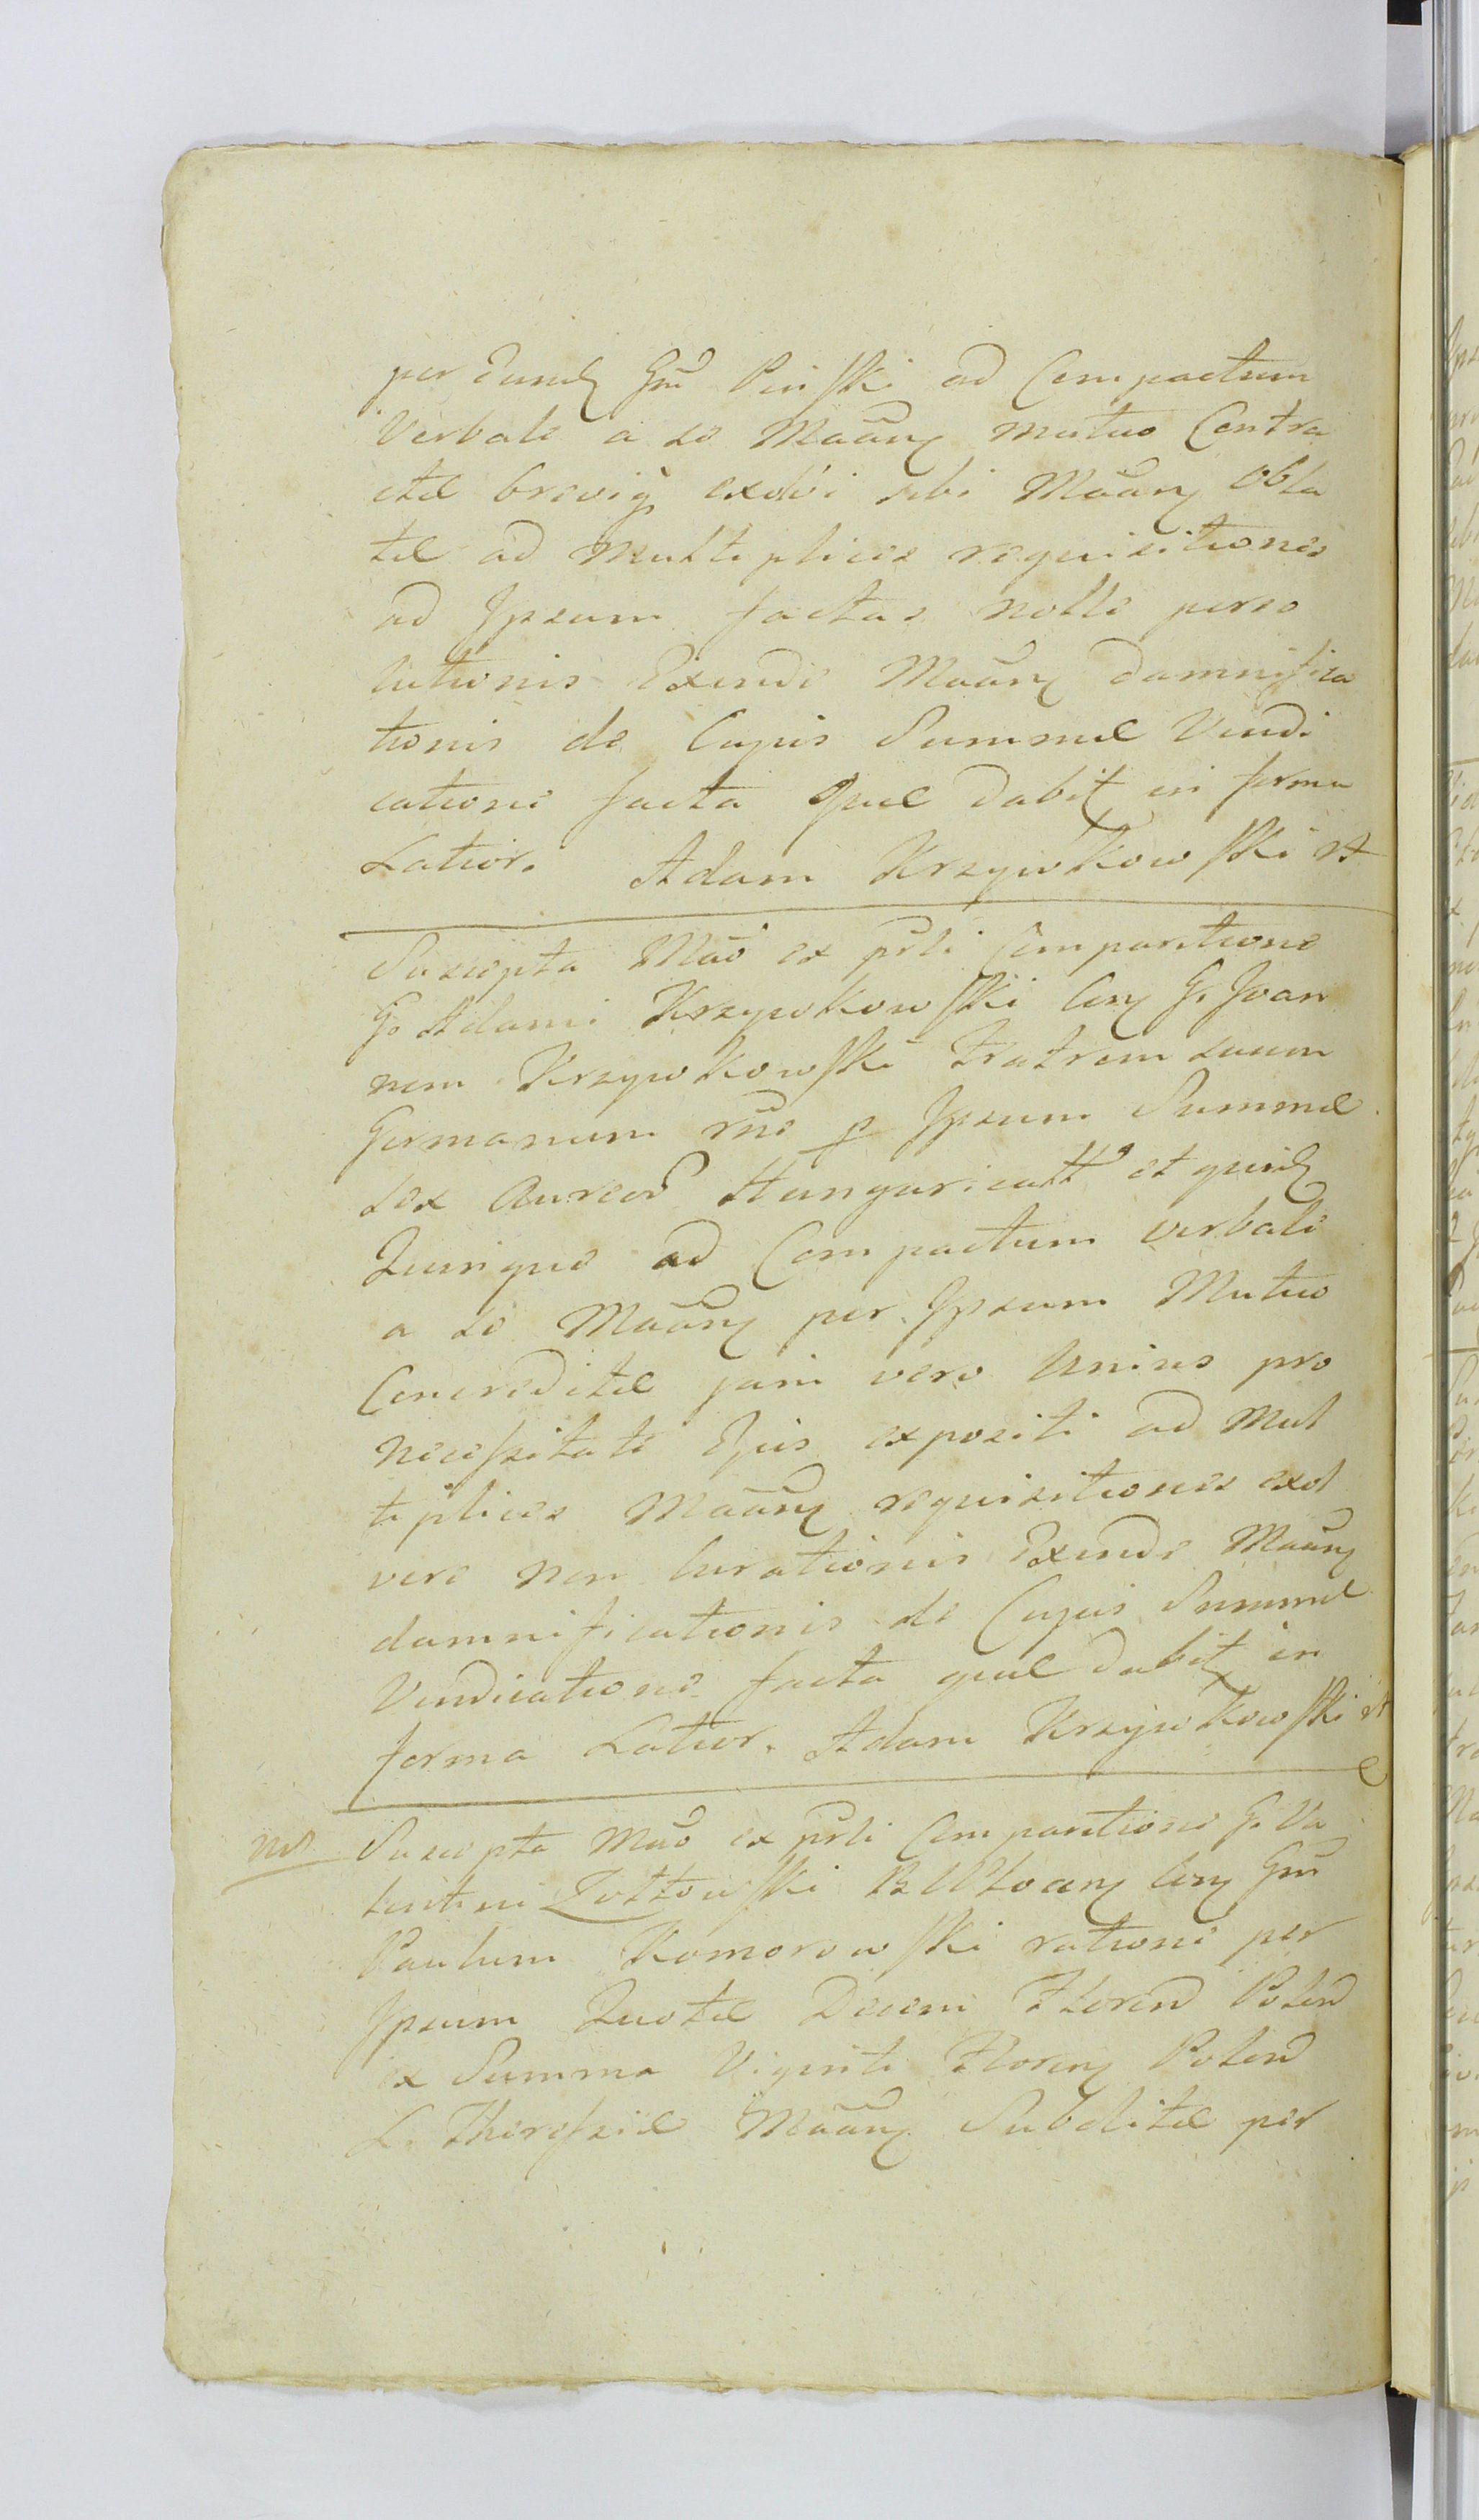 per Eund Gnu Piiski ad Compactum
Verbale a se Maang mutuo Contra
ctae brevig exolvi sibi Maang obla
tae ad Multiplices requisitiones
ad Ipsum factas nolle perso
lutionis Exinde Maang damnifica
tionis de Cujus Summae Vindi
catione facta Quae dabit in forma
Latior. Adam Krzywkowski A
Suscepta Mao ex prli Comparitione
G. Adami Krzywkowski Cong G. Joan
nem Krzywkowski Fratrem suum
Germanum rne p Ipsum Summae
sex Aureor Hungaricatt et quid
Quinque ad Compactum verbale
a se Maang per Ipsum Mutuo
Concreditae jam vero Unius pro
necessitate Ejus expositi ad Mul
tiplices Maang requisitiones exol
vere non Curationis Exinde Maang
damnificationis de Cujus Summae
Vindicatione facta quae dabit in
forma Latior. Adam Krzywkowski A
Suscepta Mao ex prli Comparitione G. Va
lentini Zołtowski Cong Gnu
Paulum Komorowski ratione per
Ipsum Quotae Decem Floren Polon
ex Summa Viginti Floreng Polon
L. Theressiae Maang Subditae per